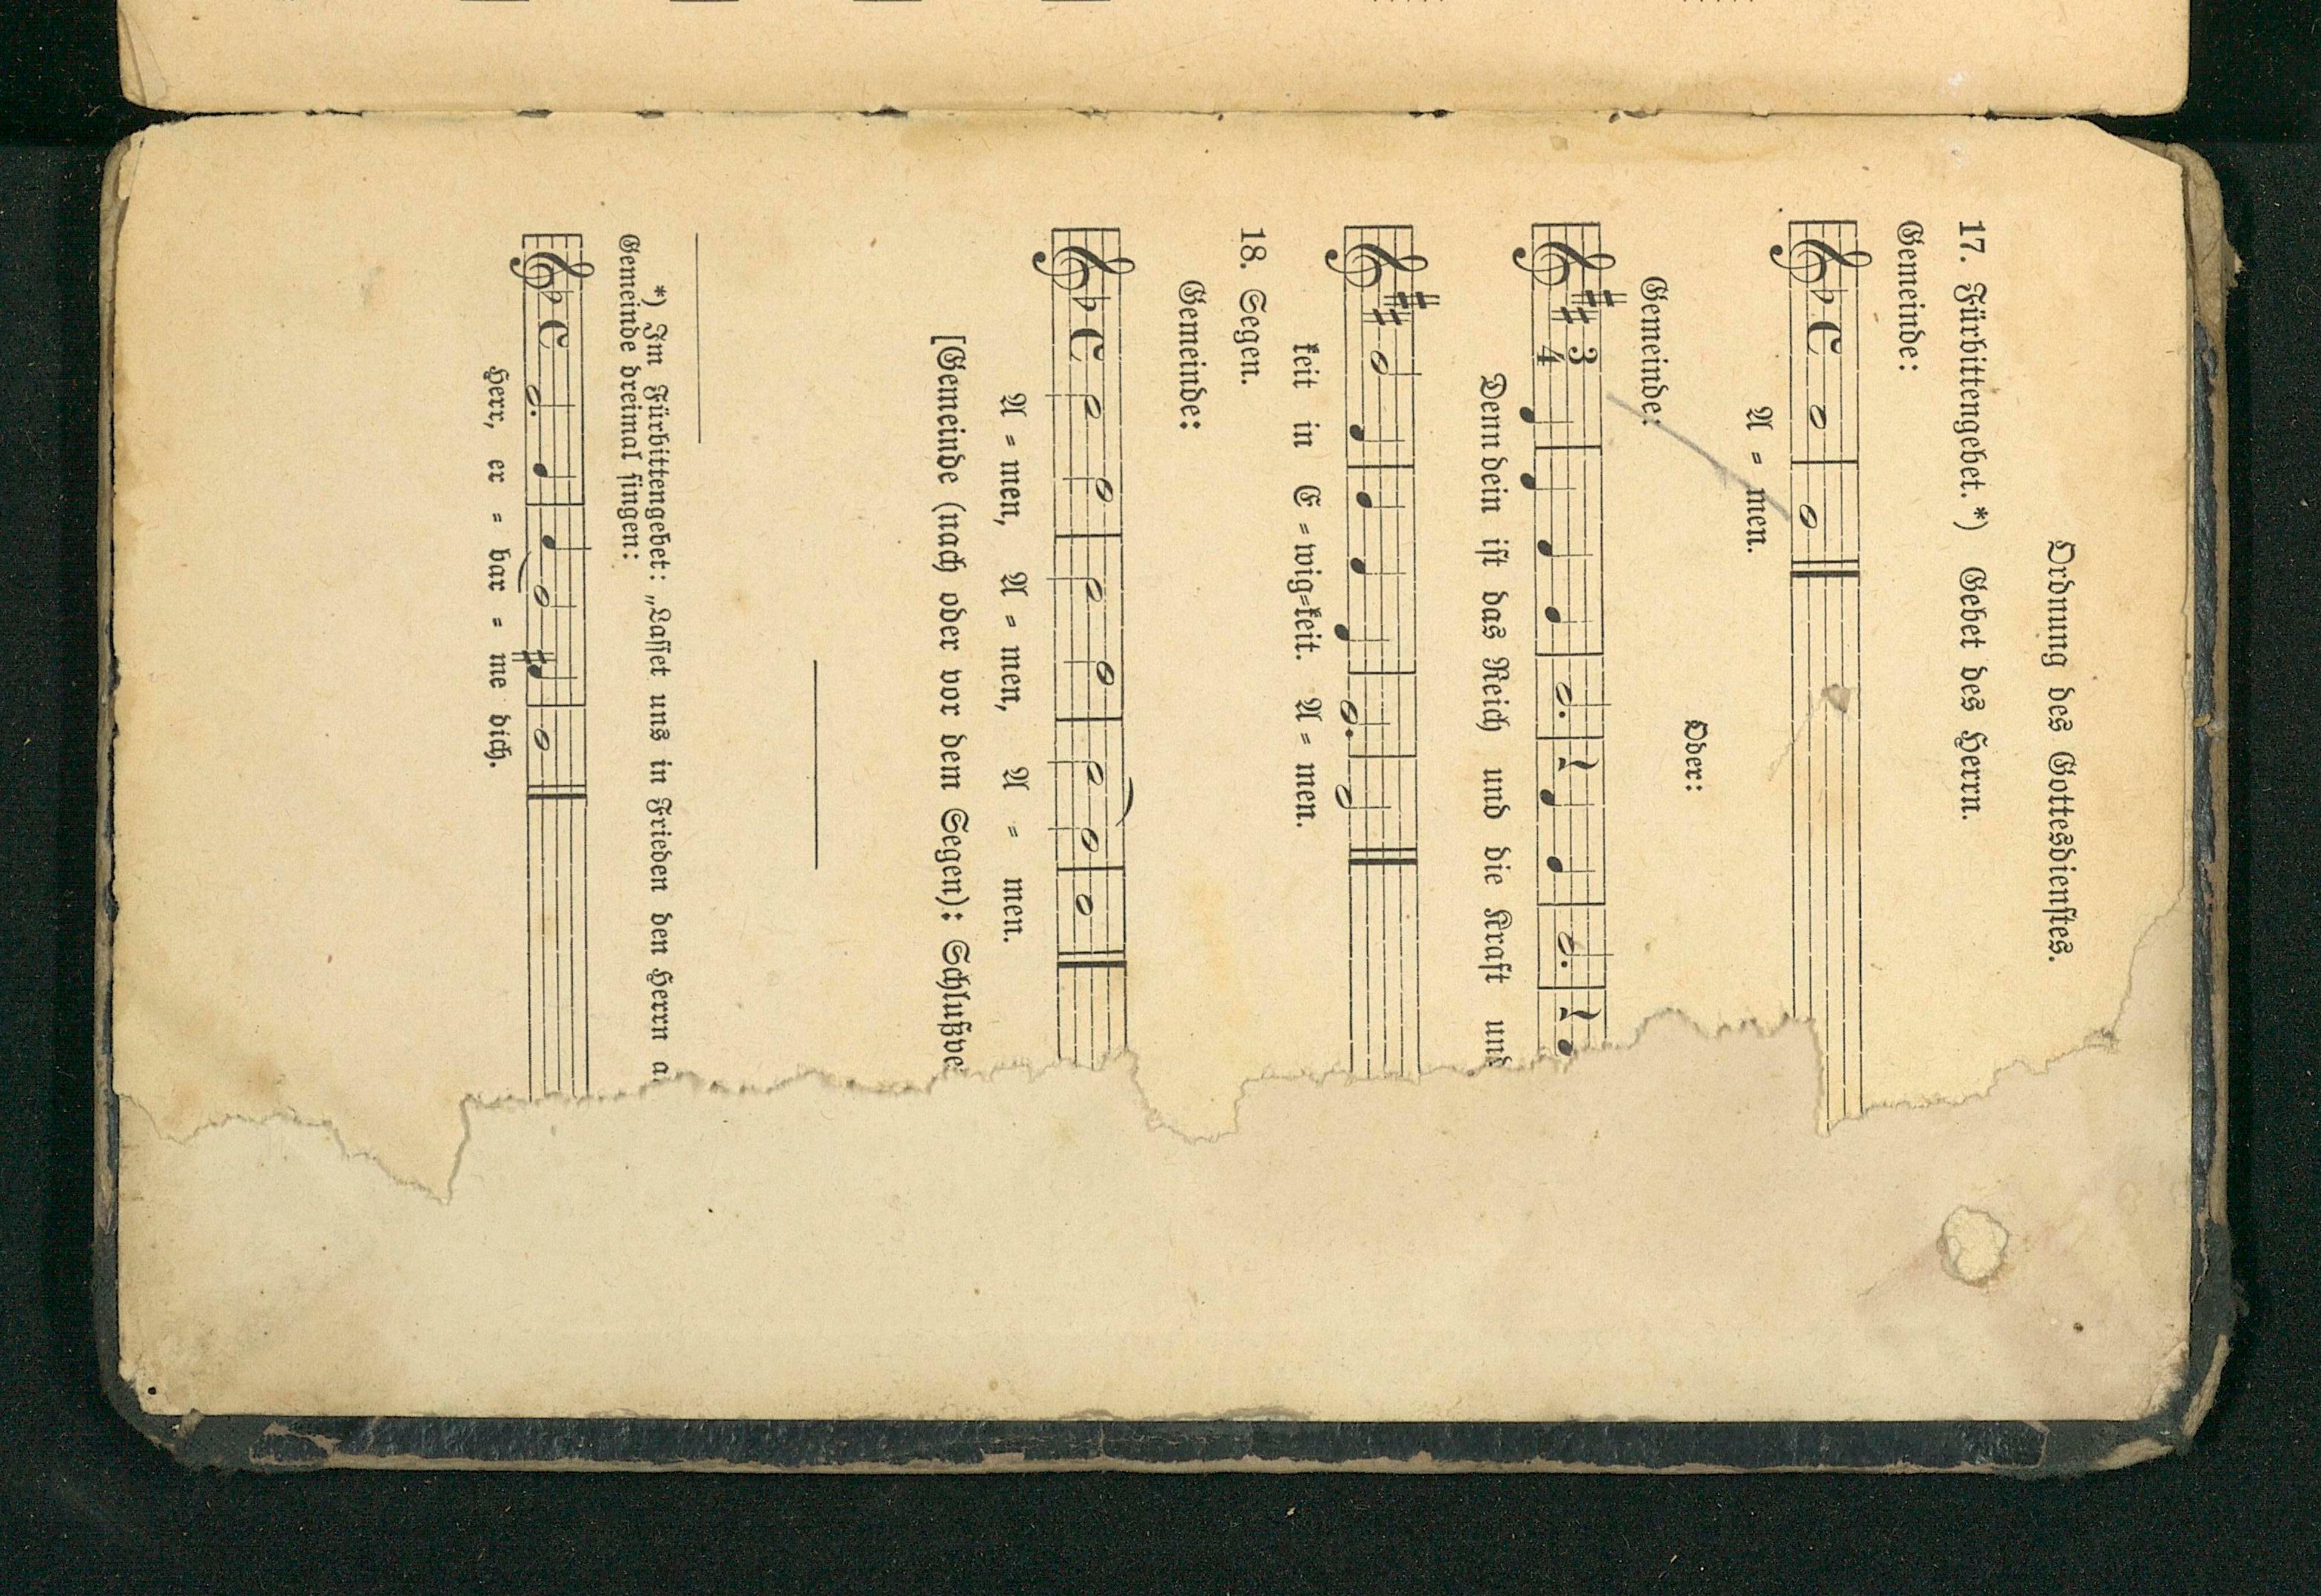 Ordnung des Gottesdienstes.
17. Fürbittengebet.*) Gebet des Herrn.
Gemeinde:
A = men.
Oder:
Gemeinde:
3
4
Denn dein ist das Reich und die Kraft und
keit in E = wig=keit. A = men.
18. Segen.
Gemeinde:
A = men, A = men, A = men.
[Gemeinde (nach oder vor dem Segen): Schlußve
*) Im Fürbittengebet: „Lasset uns in Frieden den Herrn a
Gemeinde dreimal singen:
Herr, er = bar = me dich.